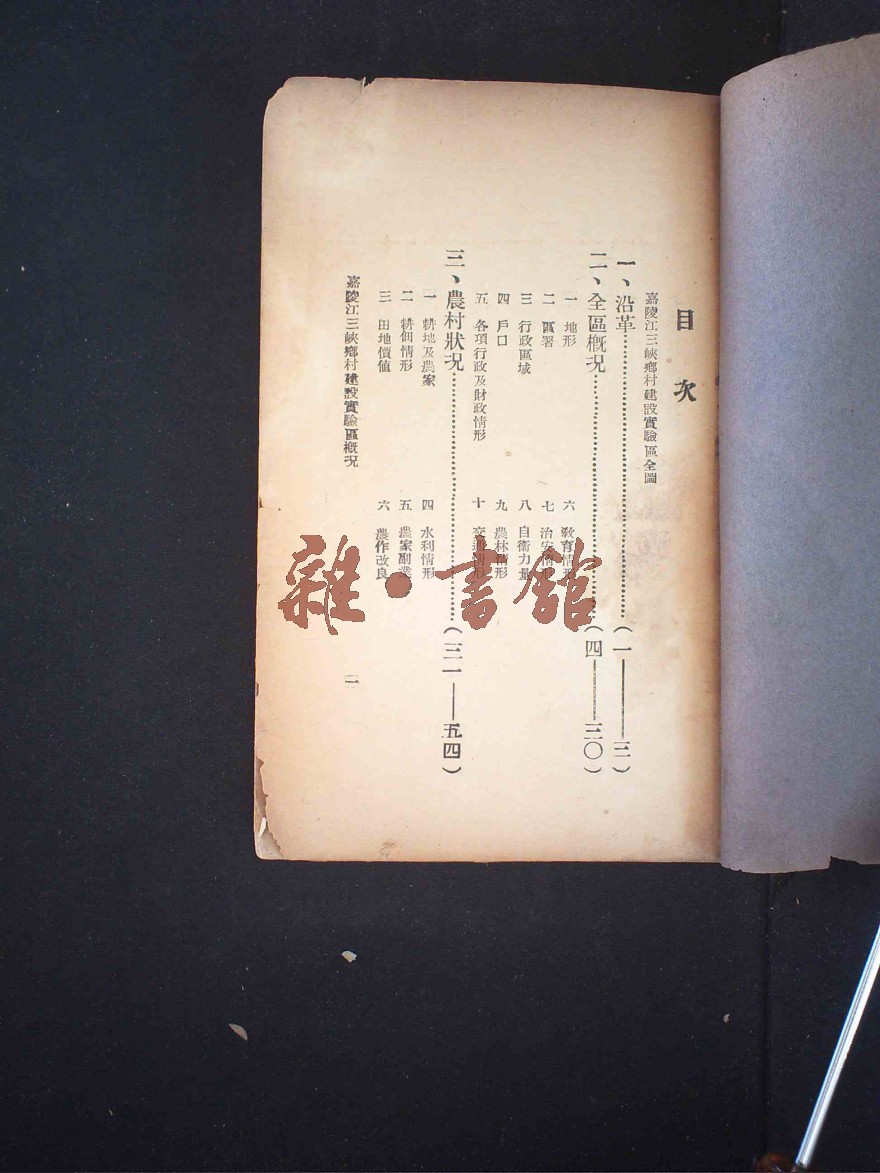 目次
嘉陵江三峽鄉村建設實驗區全圖
一、沿革……(一——三)
二、全區概況……(四——三〇)
一 地形
六 敎育情形
二 區署
七 治安情形
三 行政區域
八 自衞力量
四 戶口
九 農林情形
五 各項行政及財政情形
十 交通情形
三、農村狀況……(三一——五四)
一 耕地及農家
四 水利情形
二 耕佃情形
五 農家副業
三 田地價値
六 農作改良
嘉陵江三峽鄉村建設實驗區槪況
二
雜·書館